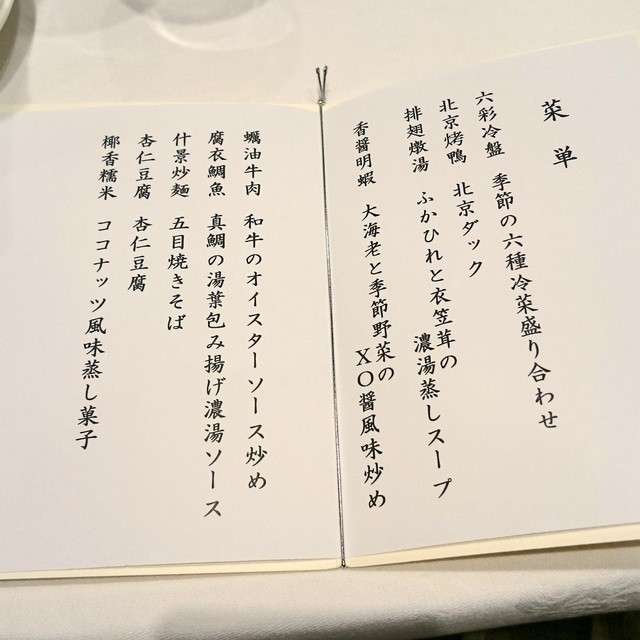 菜単
六彩冷盤 季節の六種冷菜盛り合わせ
北京烤鴨 北京ダック
排翅燉湯 ふかひれと衣笠茸の
濃湯蒸しスープ
香醤明蝦 大海老と季節野菜の
XO醤風味炒め
蠣油牛肉 和牛のオイスターソース炒め
腐衣鯛魚 真鯛の湯葉包み揚げ濃湯ソース
什景炒麵 五目焼きそば
杏仁豆腐 杏仁豆腐
椰香糯米 ココナッツ風味蒸し菓子